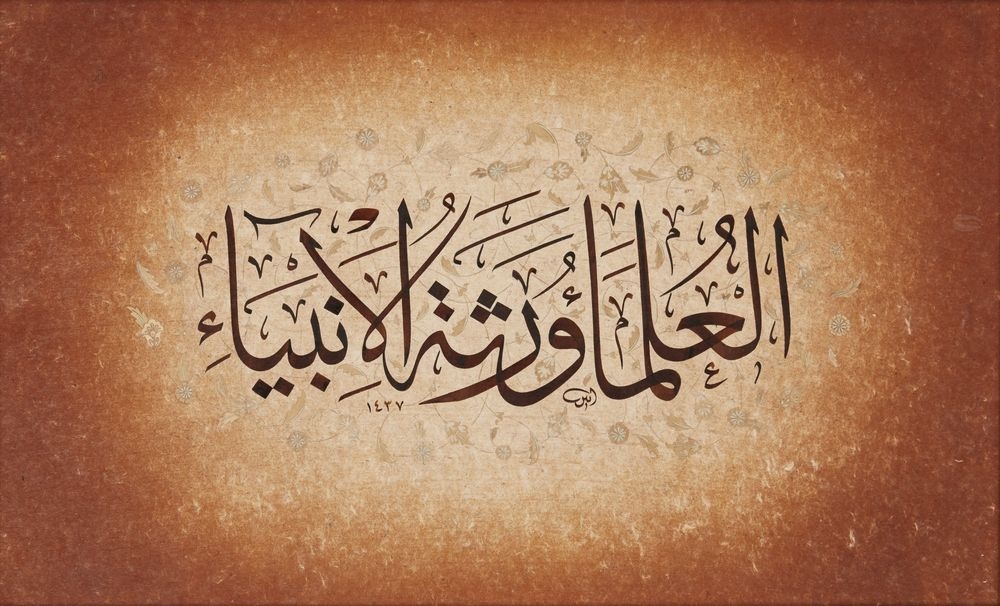 العُلَمَاءُ وَرَثَةُ الْأَنْبِيَاءِ
١٤٣٧